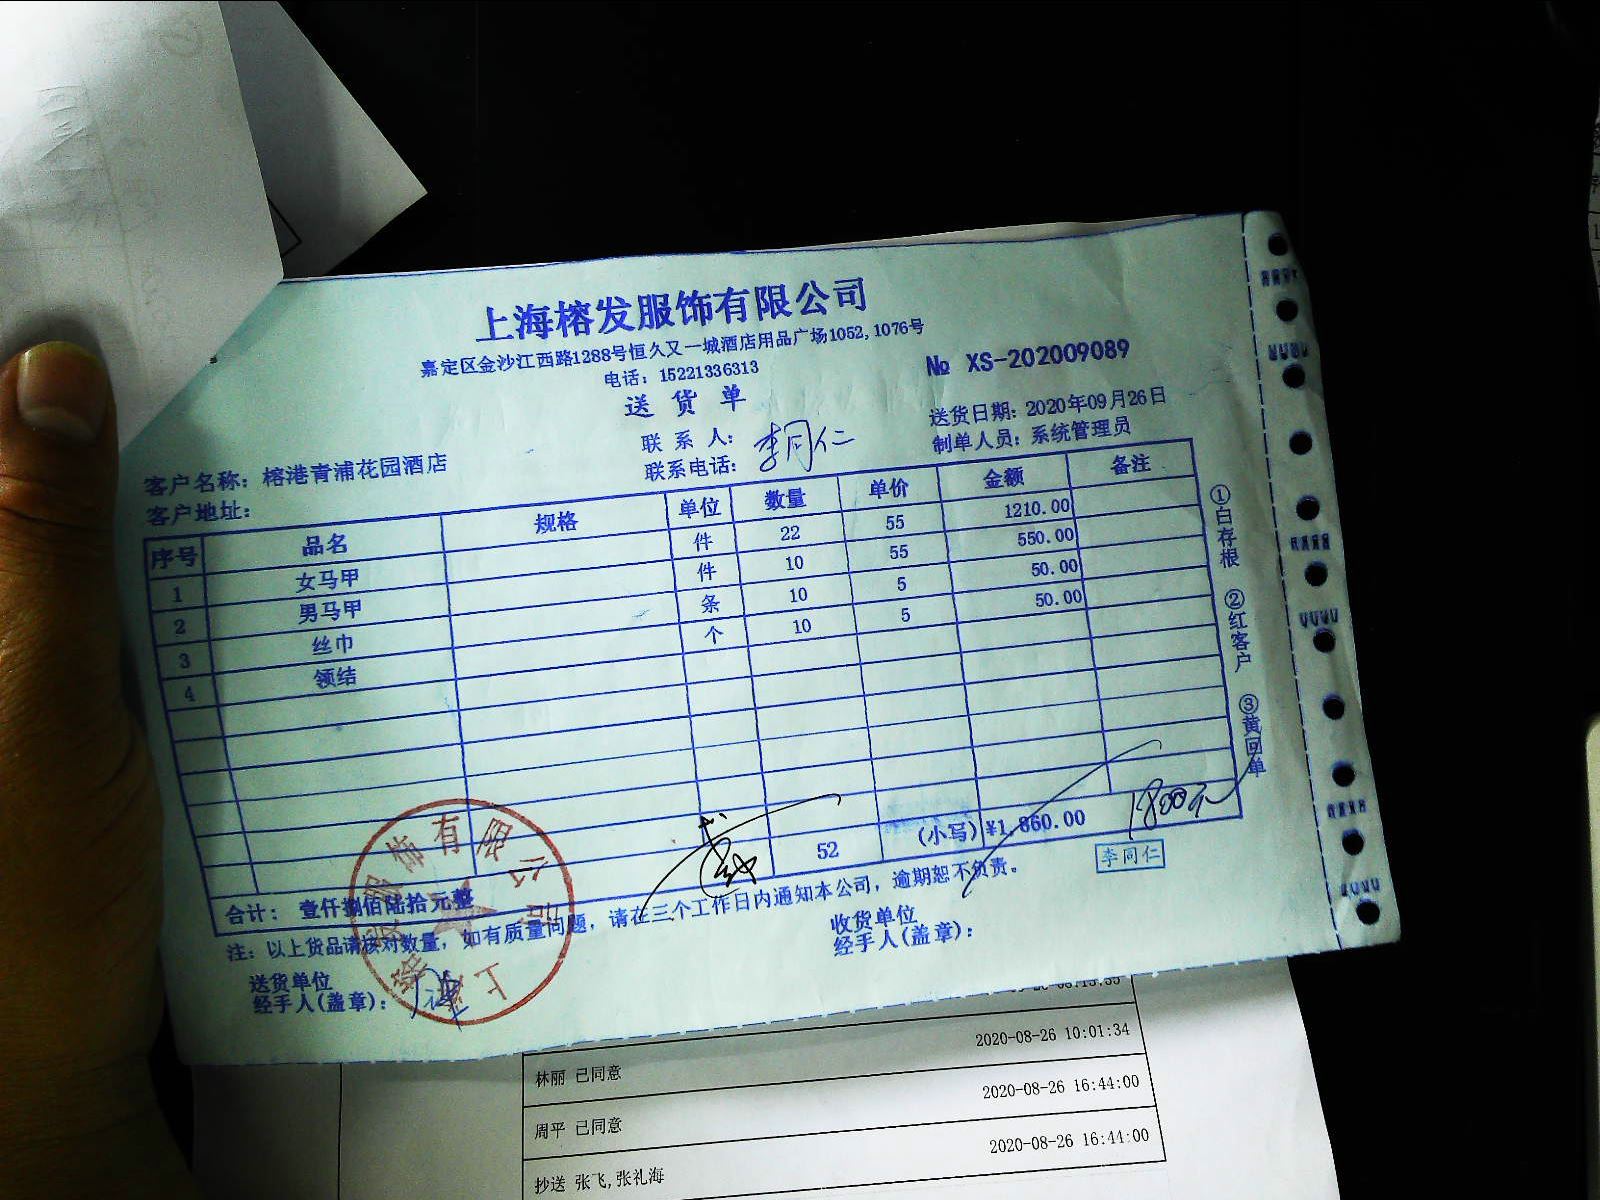 上海榕发服饰有限公司
嘉定区金沙江西路1288号恒久又一城酒店用品广场1052,1076号
电话：15221336313
№ XS-202009089
送货单
送货日期：2020年09月26日
联系人：李同仁
制单人员：系统管理员
客户名称：榕港青浦花园酒店
联系电话：
客户地址：
序号 品名 规格 单位 数量 单价 金额 备注
1 女马甲 件 22 55 1210.00
2 男马甲 件 10 55 550.00
3 丝巾 条 10 5 50.00
4 领结 个 10 5 50.00
合计： 壹仟捌佰陆拾元整 52 (小写) ¥1,860.00
1800元
李同仁
注：以上货品请核对数量，如有质量问题，请在三个工作日内通知本公司，逾期恕不负责。
送货单位
经手人(盖章)：
收货单位
经手人(盖章)：
①白存根 ②红客户 ③黄回单
2020-08-26 10:01:34
林丽 已同意
2020-08-26 16:44:00
周平 已同意
2020-08-26 16:44:00
抄送 张飞,张礼海